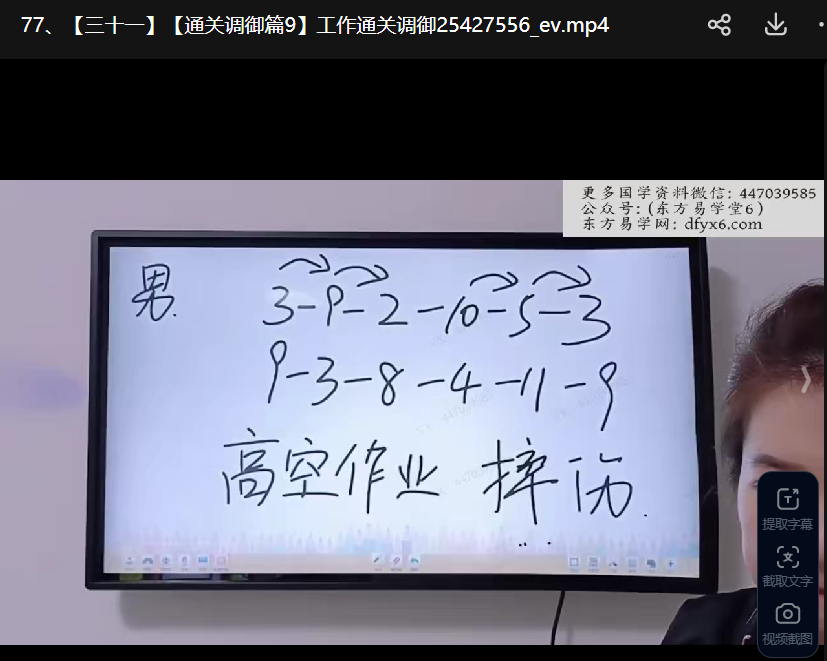 77、【三十一】【通关调御篇9】工作通关调御25427556_ev.mp4
更多国学资料微信：447039585
公众号：(东方易学堂6）
东方易学网：dfyx6.com
男.
3-9-2-10-5-3
9-3-8-4-11-9
高空作业 摔伤.
提取字幕
截取文字
视频截图